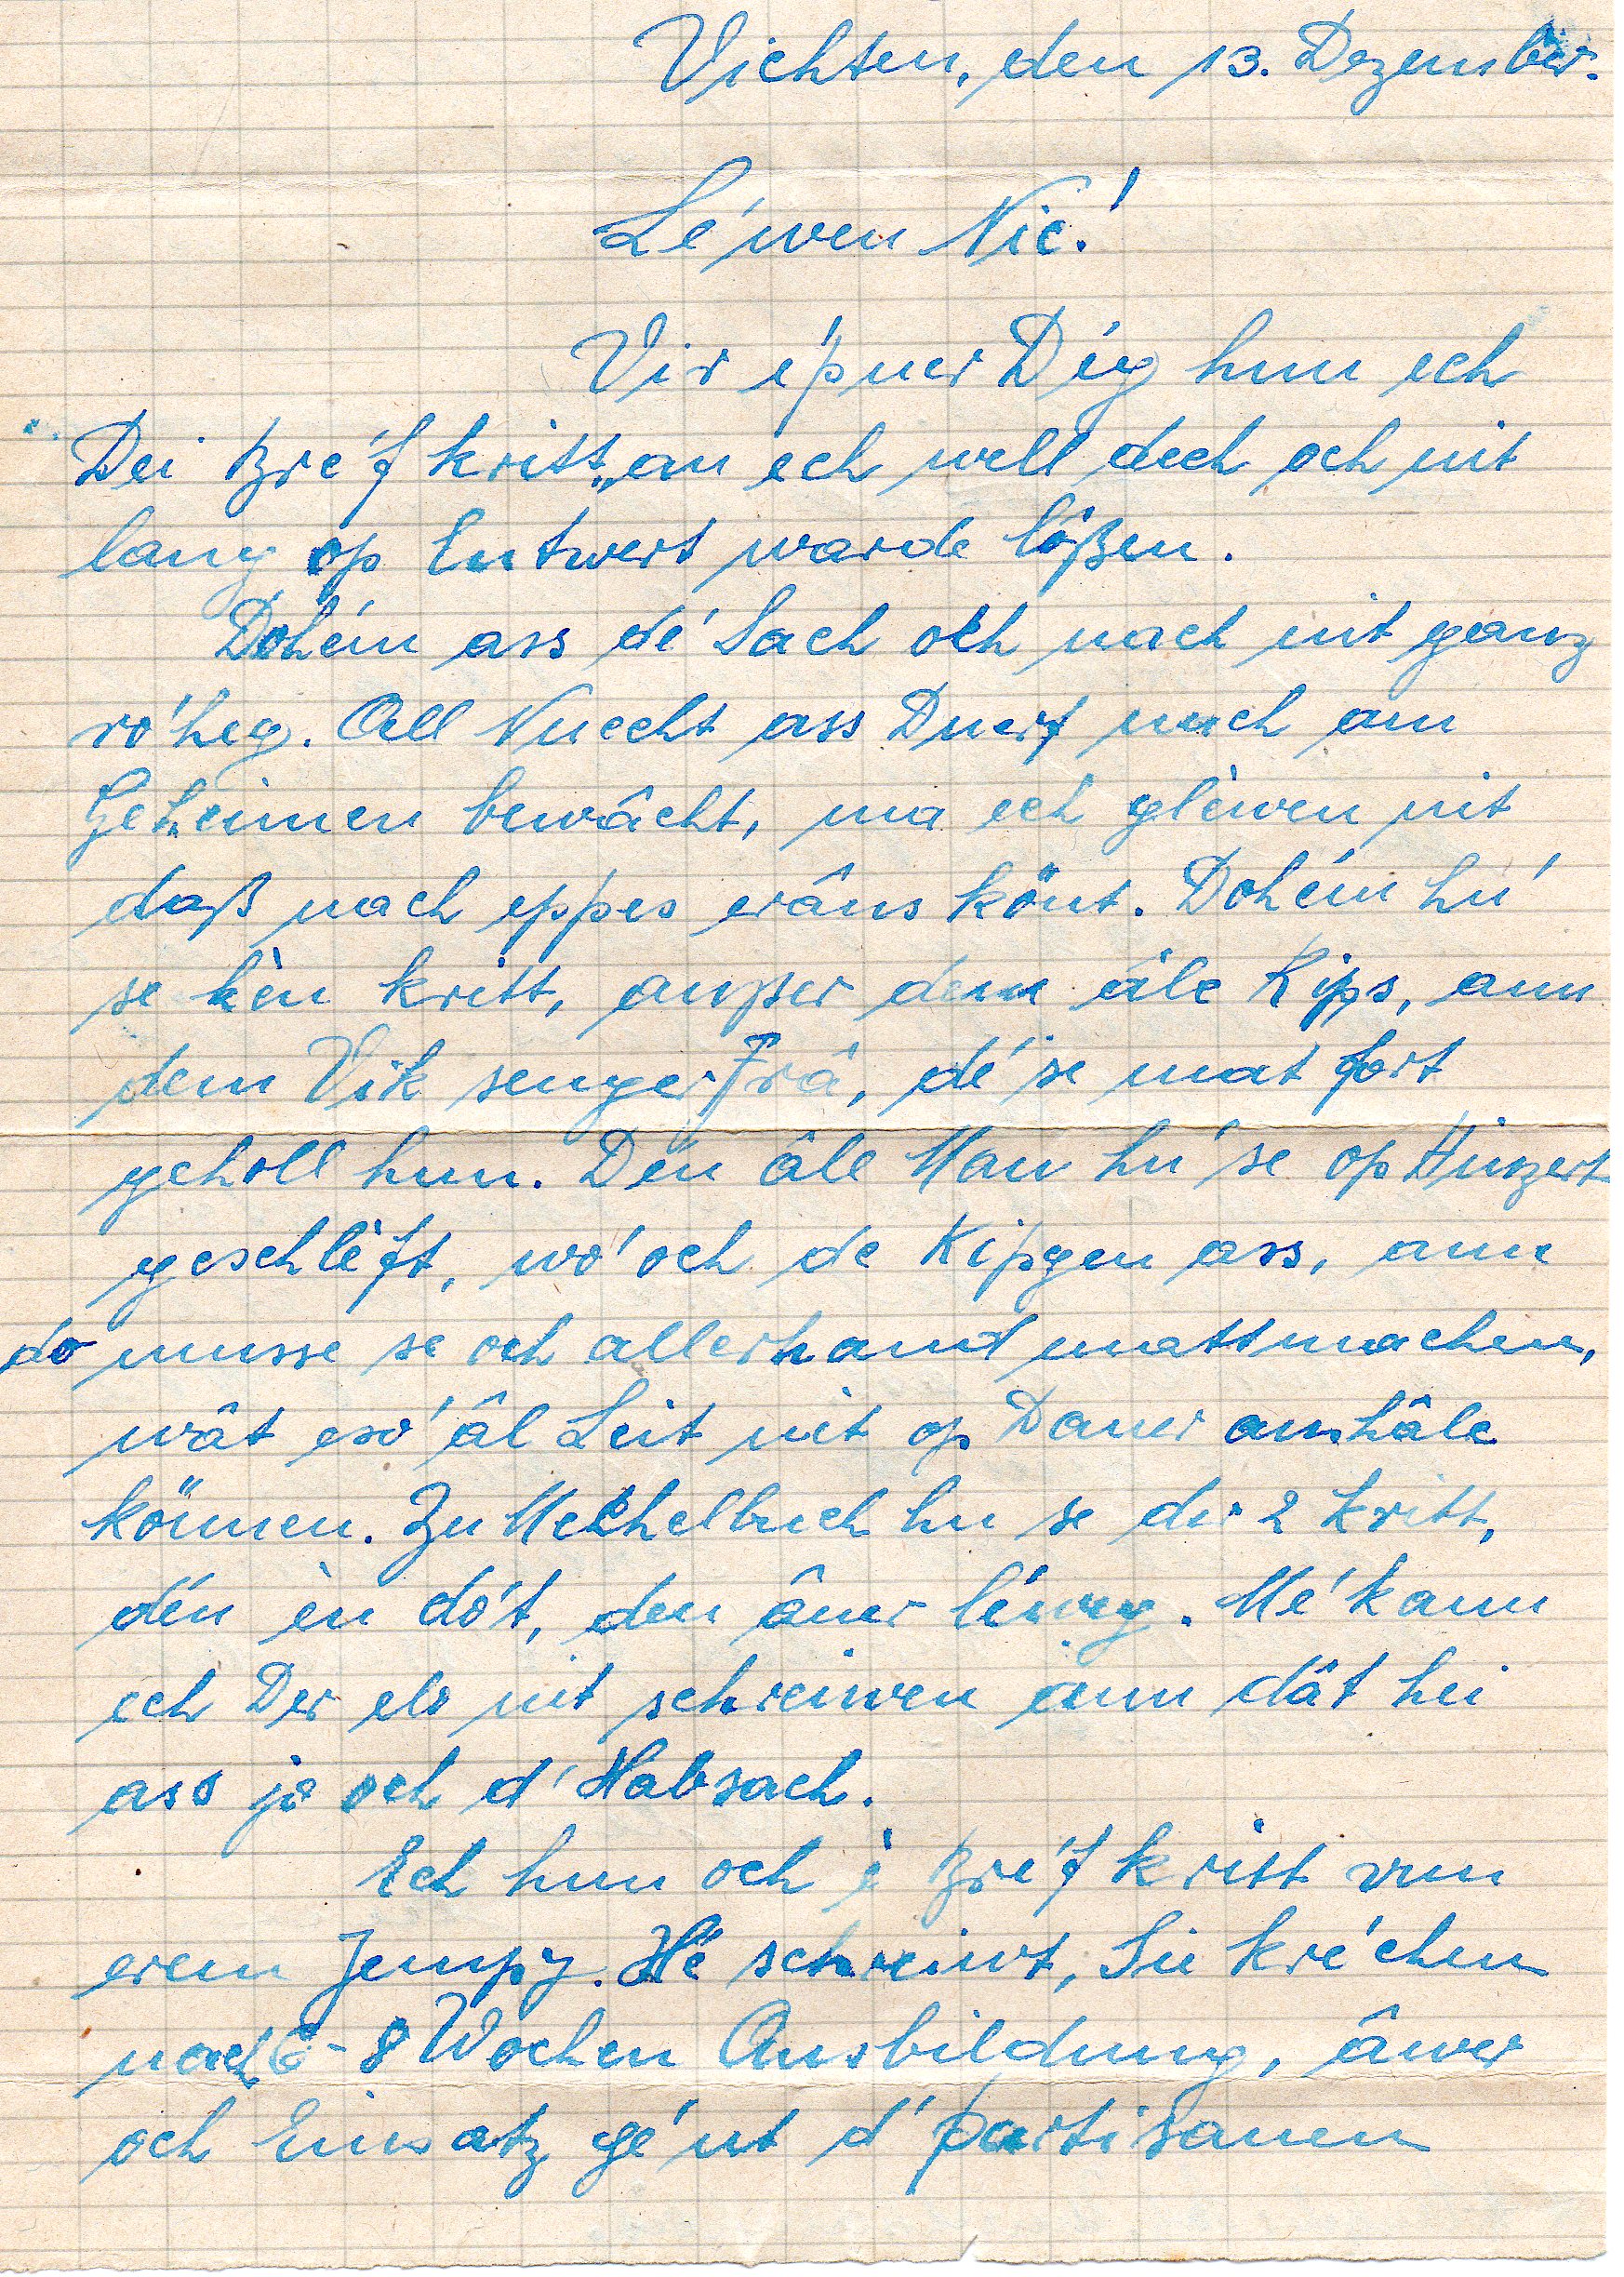 Vichten, den 13. Dezember.
Lé'wen Nic!
Vir e'puer Dég hun ech
Dei Bre'f kritt „an ech well dech och nit
lang op Entwert warde lößen.
Dohém ass de' Sach och nach nit ganz
ro'heg. All Nuecht ass Duerf nach am
Geheimen bewâcht, ma ech glèwen nit
daß nach eppes erâus könt. Dohém hu'
se kèn kritt, außer dem âle Kips, ann
dem Vik senger Frâ, dé' se mat fort
geholl hun. Den âle Man hu' se op Hinzert
geschlèft, wo' och de Kipgen ass, ann
do musse se och allerhand mattmachen,
wât eso' âl Leit nit op Dauer anhâle
können. Zu Mechelbuch hu se der 2 kritt,
dén èn do't, den âner léweg. Mé' kann
ech Der elo nit schreiwen ann dât hei
ass jo och d' Habsach.
Ech hun och è Bre'f kritt vun
erem Jempy. Hé schreiwt, Si kre'chen
nach 6-8 Wochen Ausbildung, âwer
och Einsatz ge'nt d' Partisanen